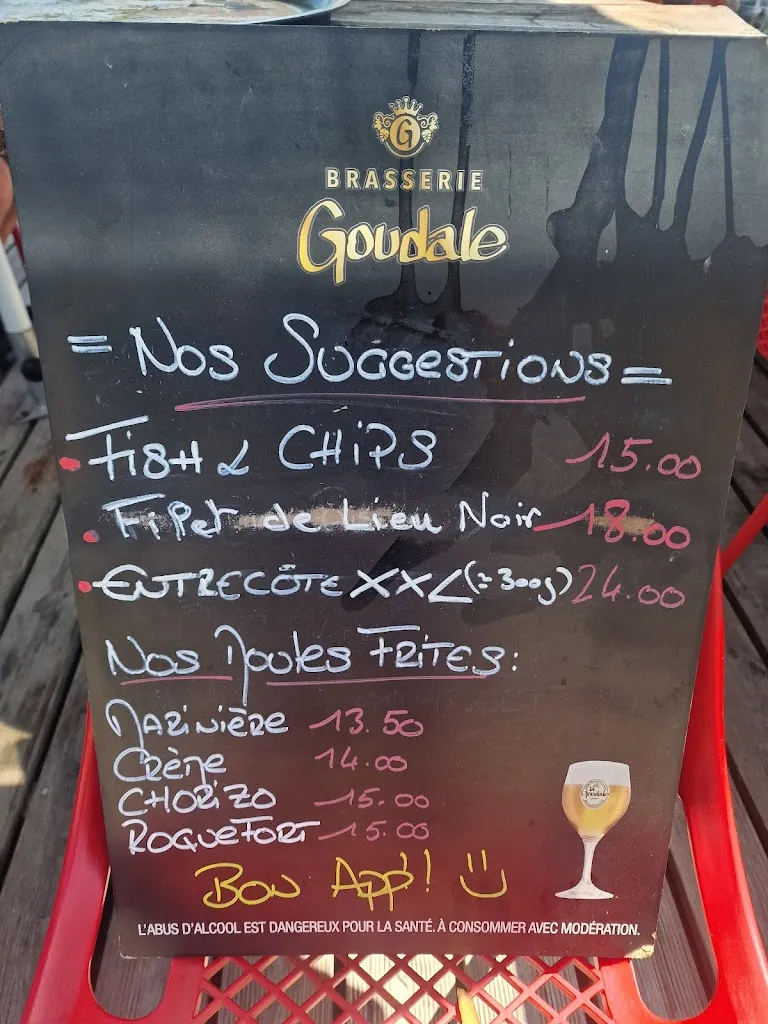 G
BRASSERIE
Goudale
= Nos Suggestions =
• Fish & CHiPS 15.00
• Filet de Lieu Noir 18.00
• ENTRECÔTE XXL (≃ 300g) 24.00
Nos Moules FRITES:
MARiNiÈRe 13.50
CRÈMe 14.00
CHORiZO 15.00
ROQUEFORT 15.00
BON App'!
La Goudale
L'ABUS D'ALCOOL EST DANGEREUX POUR LA SANTÉ. À CONSOMMER AVEC MODÉRATION.